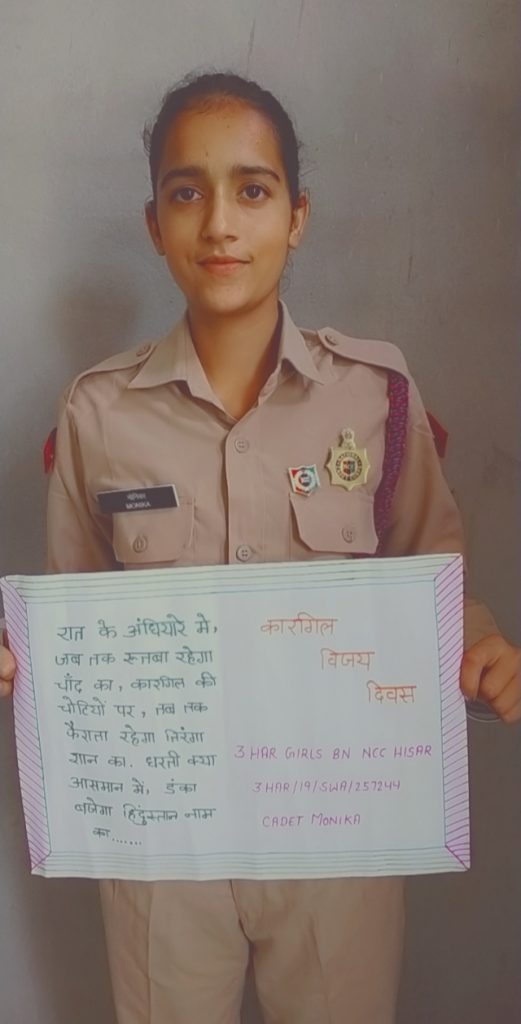 मोनिका
MONIKA
रात के अंधियारे मे,
जब तक रूतबा रहेगा
चाँद का, कारगिल की
चोटियों पर, तब तक
फैराता रहेगा तिरंगा
शान का. धरती क्या
आसमान में, डंका
बजेगा हिंदुस्तान नाम
का.......
कारगिल
विजय
दिवस
3 HAR GIRLS BN NCC HISAR
3 HAR/19/SWA/257244
CADET MONIKA